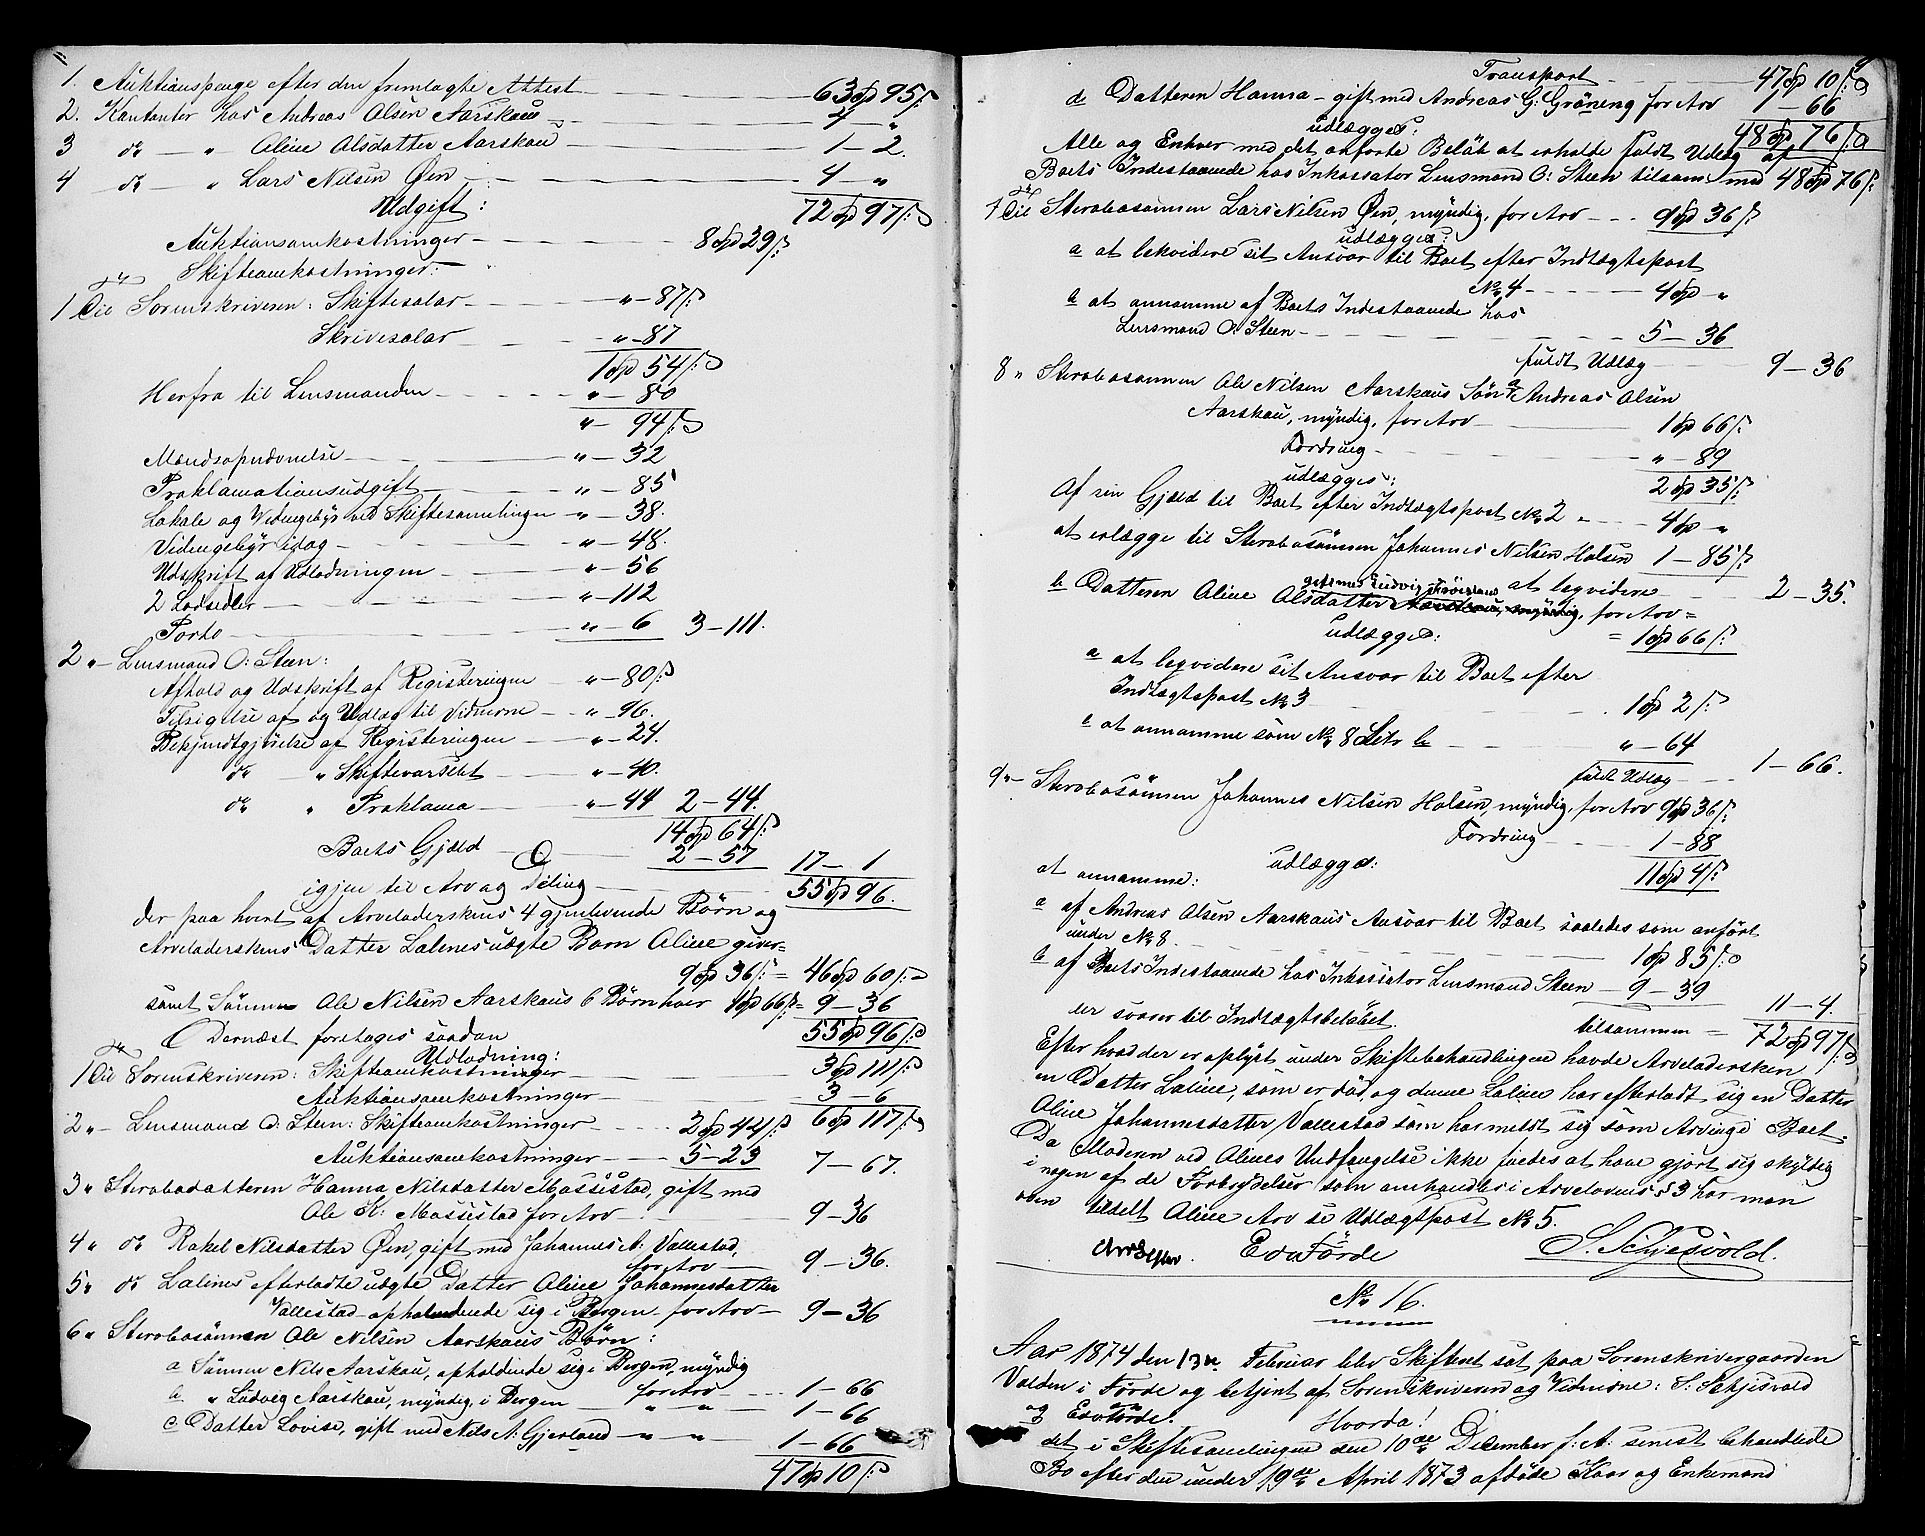 1. Auktionspenge efter den fremlagte Attest 63 Spd 95 ß
2. Kontanter hos Andreas Olsen Aarskau 4 - "
3 do - " Oline Olsdatter Aarskau 1 - 2.
4 do - " Lars Nilsen Øen 4 - "
Udgift: 72 Spd 97 ß
Auktionsomkostninger 8 Spd 29 ß
Skifteomkostninger:
1 Til Sorenskriveren: Skiftesalær " - 87 ß
Skrivesalær " - 87
1 Spd 54 ß
Herfra til Lensmanden " - 80
" - 94 ß
Mændsopnævnelse " - 32
Proklamationsudgift " - 85
Lokale og Vidnegebyr ved Skiftesamlingen " - 38.
Vidnegebyr idag " - 48.
Udskrift af Udlodningen " - 56
2 Lodsedler " - 112
Porto " - 6 3 - 111.
2 " - Lensmand O: Steen:
Afhold og Udskrift af Registeringen " - 80 ß
Tilsigelse af og Udlæg til Vidnerne " - 96.
Bekjendtgjörelse af Registeringen " - 24.
do - " Skiftevarselet " - 40.
do " Proklama " - 44 2 - 44.
14 Spd 64 ß
Boets Gjæld 2 - 57 17 - 1
igjen til Arv og Deling 55 Spd 96.
der paa hvert af Arveladerskens 4 gjenlevende Børn og
Arveladerskens Datter Lalines uægte Barn Oline giver =
9 Spd 36 ß = 46 Spd 60 ß
samt Sønnen Ole Nilsen Aarskaus 6 Børn hver 1 Spd 66 ß = 9 - 36
55 Spd 96 ß
Dernæst foretoges saadan
Udlodning:
1 Til Sorenskriveren: Skifteomkostninger 3 Spd 111 ß
Auktionsomkostninger 3 - 6
6 Spd 117 ß
2 " - Lensmand O: Steen: Skifteomkostninger 2 Spd 44 ß
Auktionsomkostninger 5 - 23 7 - 67.
3 " Sterbodatteren Hanna Nilsdatter Massestad, gift med
Ole K: Massestad for Arv 9 - 36
4 " do Rakel Nilsdatter Øen, gift med Johannes A: Vallestad,
for Arv 9 - 36.
5 " do Lalines efterladte uægte Datter Oline Johannesdatter
Vallestad opholdende sig i Bergen for Arv 9 - 36
6 " Sterbosønnen Ole Nilsen Aarskaus Børn:
a Sønnen Nils Aarskau, opholdende sig i Bergen, myndig
for Arv 1 - 66
b " Ludvig Aarskau, myndig, i Bergen " " 1 - 66
c Datter Lovise, gift med Nils N: Gjerland " " 1 - 66
47 Spd 10 ß
Transport 47 Spd 10 ß
d Datteren Hanna - gift med Andreas G: Gröneng for Arv 1 - 66
udlægges: 48 Spd 76 ß
Alle og Enhver med det anførte Beløb at erholde fuldt Udlæg af
Boets Indestaaende hos Inkassator Lensmand O: Steen tilsam: med 48 Spd 76 ß
7 Til Sterbosønnen Lars Nilsen Øen, myndig, for Arv 9 Spd 36 ß
udlægges:
a at lekvidere sit Ansvar til Boet efter Indtægtspost
No 4 4 Spd "
b at annamme af Boets Indestaaende hos
Lensmand O: Steen 5 - 36
fuldt Udlæg 9 - 36
8 " Sterbosønnen Ole Nilsen Aarskaus Søn a Andreas Olsen
Aarskau, myndig, for Arv 1 Spd 66 ß
Fordring " - 89
udlægges: 2 Spd 35 ß
Af sin Gjæld til Boet efter Indtægtspost No 2 " 4 Spd "
at erlægge til Sterbosønnen Johannes Nilsen Holsen 1 - 85 ß
at leqvidere 2 - 35.
gift med Ludvig
b Datteren Oline Olsdatter Aarskau, myndig, for Arv =
udlægges: = 1 Spd 66 ß
a at leqvidere sit Ansvar til Boet efter
Indtægtspost No 3 1 Spd 2 ß
c at annamme som No 8 Litr b " - 64
fuldt Udlæg 1 - 66.
9 " - Sterbosønnen Johannes Nilsen Holsen, myndig, for Arv 9 Spd 36 ß
Fordring 1 - 88
udlægges: 11 Spd 4 ß
at annamme:
a af Andreas Olsen Aarskaus Ansvar til Boet saaledes som anført
under No 8. 1 Spd 85 ß
b af Boets Indestaaende hos Inkassator Lensmand Steen 9 - 39
11 - 4.
der svarer til Indtægtsbeløbet. tilsammen = 72 Spd 97 ß
Efter hvad der er oplyst under Skiftebehandlingen havde Arveladersken
en Datter Laline, som er död, og denne Laline har efterladt sig en Datter
Oline Johannesdatter Vallestad som har meldt sig som Arvinge i Boet.
Da Moderen ved Olines Undfangelse ikke findes at have gjort sig skyldig
i nogen af de Forbrydelser som omhandles i Arvelovens § 3 har man
oven tildelt Oline Arv se Udlægspost No 5.
Edv Förde S. Schjesvold.
No 16.
Aar 1874 den 13de Februar blev Skifteret sat paa Sorenskrivergaarden
Volden i Førde og betjent af Sorenskriveren og Vidnerne: S: Schjesvold
og Edv Førde. Hvorda!
det i Skiftesamlingen den 10de December f: A: senest behandlede
Bo efter den under 19de April 1873 afdöde Kaar og Enkemand